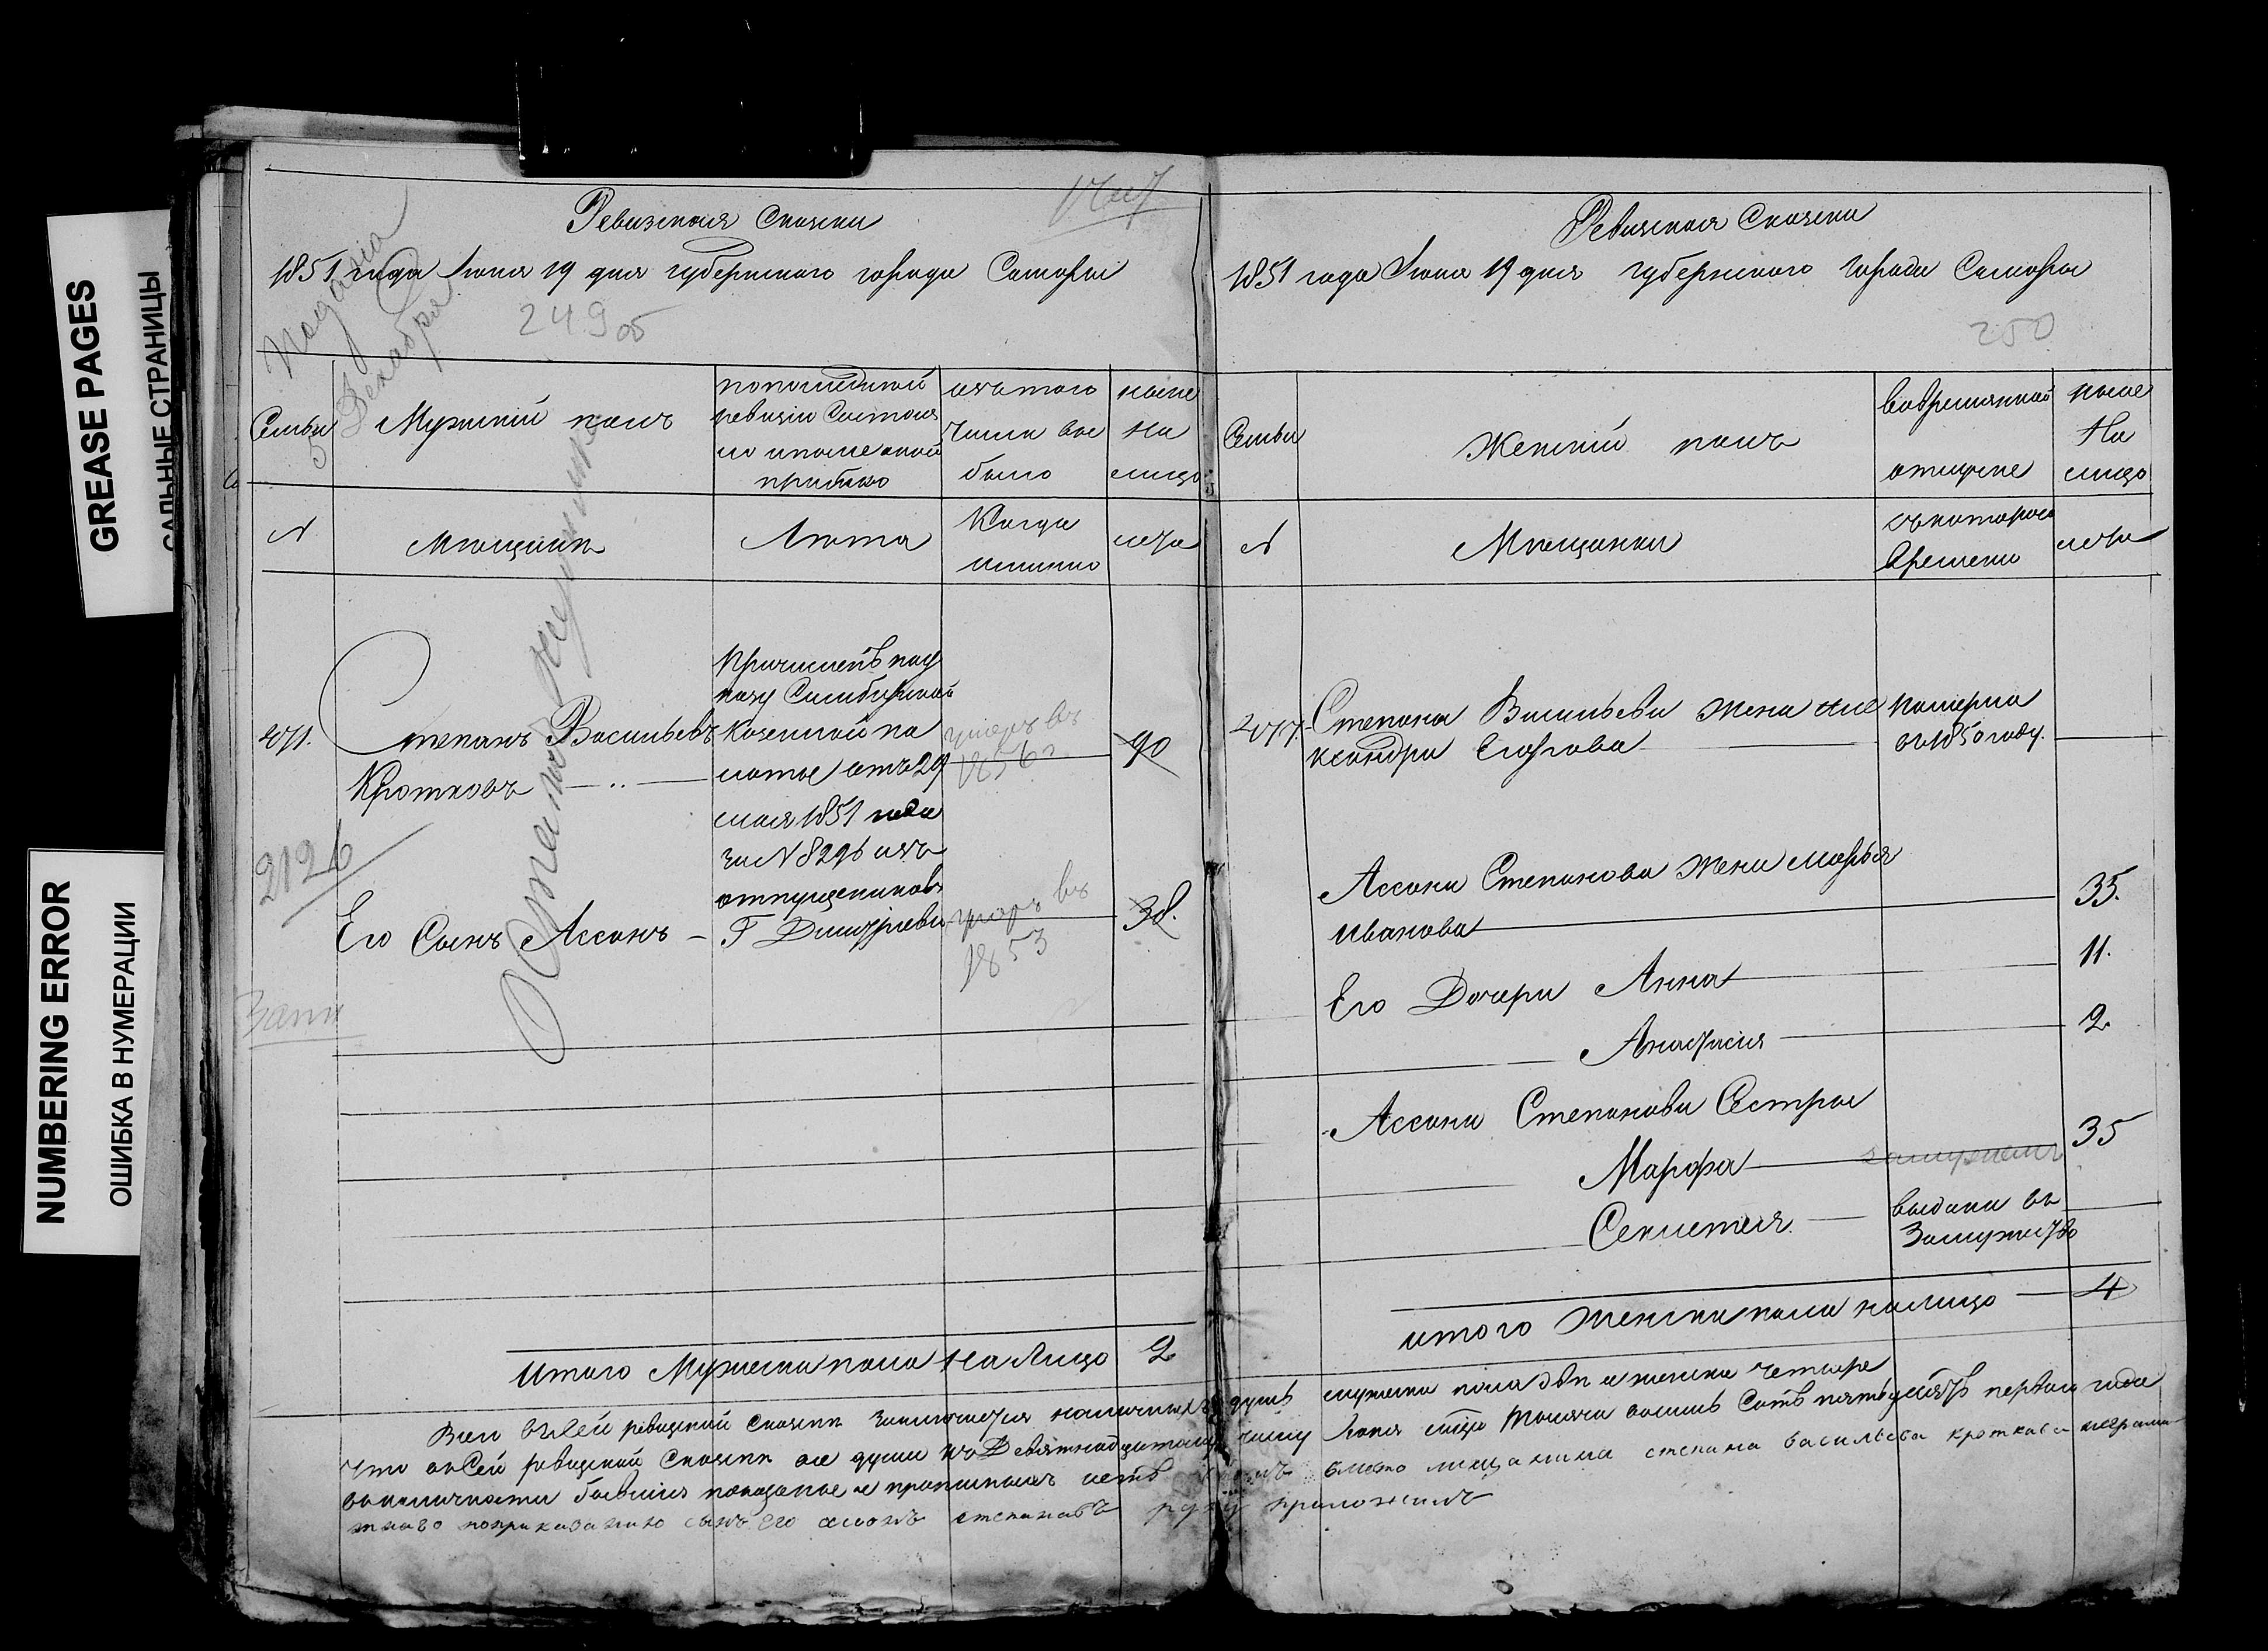 GREASE PAGES
САЛЬНЫЕ СТРАНИЦЫ
NUMBERING ERROR
ОШИБКА В НУМЕРАЦИИ
Ревизская Сказка
1851 года Июня 19 дня губернского города Самары
249 об
Подана
5 Декабря
Семьи
Мужский полъ
по последней
ревизiи Состоя
ло и после оной
прибыло
изъ того
числа вы
было
ныне
на
лицо
N
Мещане
Лета
Когда
именно
лета
Степанъ Васильевъ
Кротковъ
Причисленъ по
указу Симбирской
Казенной па
латы отъ 29
мая 1851 года
за N 8296 изъ
отпущениковъ
Г Дмитрiева
умеръ въ
1856 г
90
2126
Его Сынъ Ассонъ
умеръ въ
1853
38.
Итого Мужеска пола на Лицо 2
Ревизская Сказка
1851 года Июня 19 дня губернского города Самары
250
Семьи
Женскiй полъ
во временной
отлучке
ныне
На
лицо
N
Мещанки
съ котораго
Времени
лета
Степана Васильева жена Але
ксандра Егорова
померла
въ 1850 году.
Ассона Степанова жена Марья
Иванова
35.
Его Дочери Анна
11.
Анастасия
2.
Ассона Степанова Сестры
Марфа
замужемъ
35
Секлетея
выдана въ
Замужство
итого женска пола налицо 4
Всего въ сей ревизской сказке заключается наличныхъ душъ мужеска пола две и женска четыре
что въ Сей ревизской Сказке все души по Девятнадцатому числу Июня тысяча восемь Сотъ пятьдесятъ первого года
въ наличности бывшия показаны и прописныхъ нетъ вместо мещанина степана васильева кроткова неграмо
тнаго по приказанию сынъ его степановъ руку приложилъ